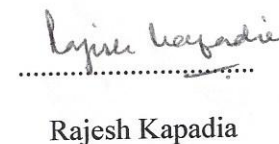 Rajesh Kapadia
..............................
Rajesh Kapadia